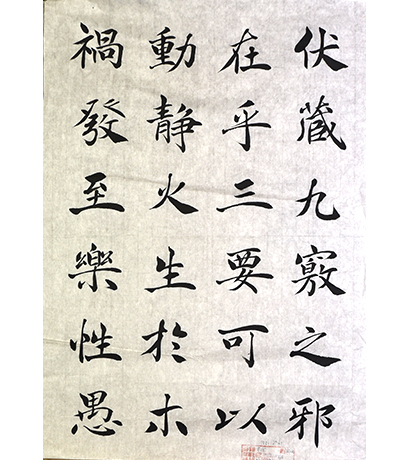 伏藏九竅之邪
在乎三要可以
動靜火生於木
禍發至樂性愚